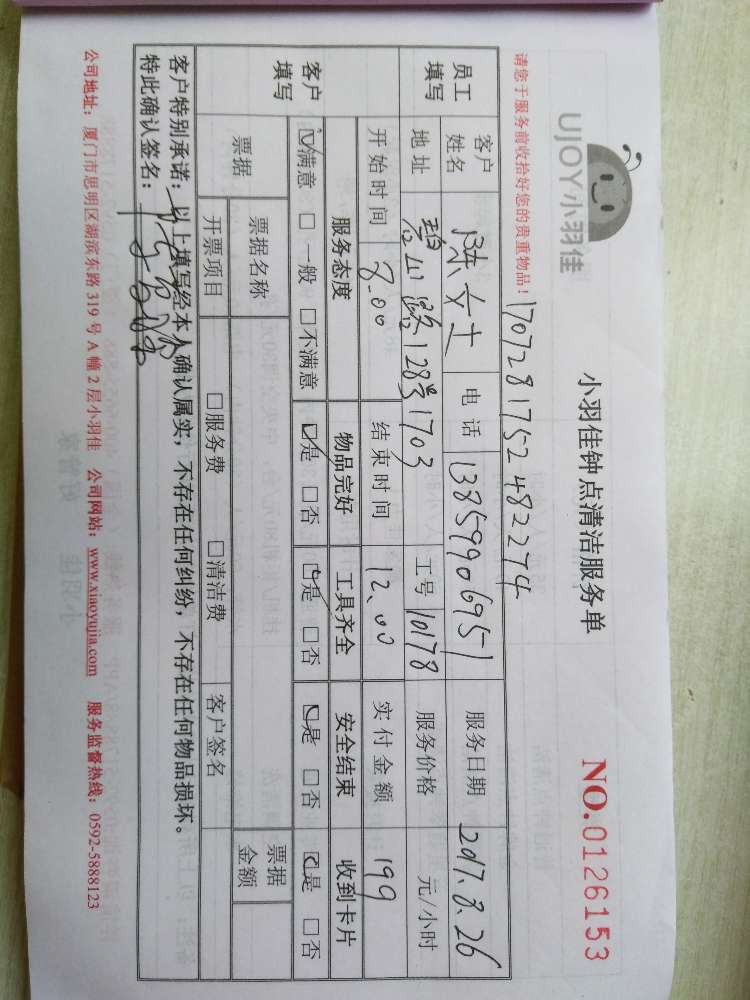 UJOY小羽佳
小羽佳钟点清洁服务单
NO.0126153
请您于服务前收拾好您的贵重物品！ 170728175248 2274
员工填写 客户姓名 陈女士 电话 13859906951 服务日期 2017.8.26
地址 碧山路128号1703 工号 10178 服务价格 元/小时
客户填写 开始时间 8.00 结束时间 12.00 实付金额 199
服务态度 物品完好 工具齐全 安全结束 收到卡片
☑满意 □一般 □不满意 ☑是 □否 ☑是 □否 ☑是 □否 ☑是 □否
票据 票据名称 票据金额
开票项目 □服务费 □清洁费 客户签名
客户特别承诺：以上填写经本人确认属实，不存在任何纠纷，不存在任何物品损坏。
特此确认签名：
公司地址：厦门市思明区湖滨东路 319 号 A 幢 2 层小羽佳 公司网站：www.xiaoyujia.com 服务监督热线：0592-5888123